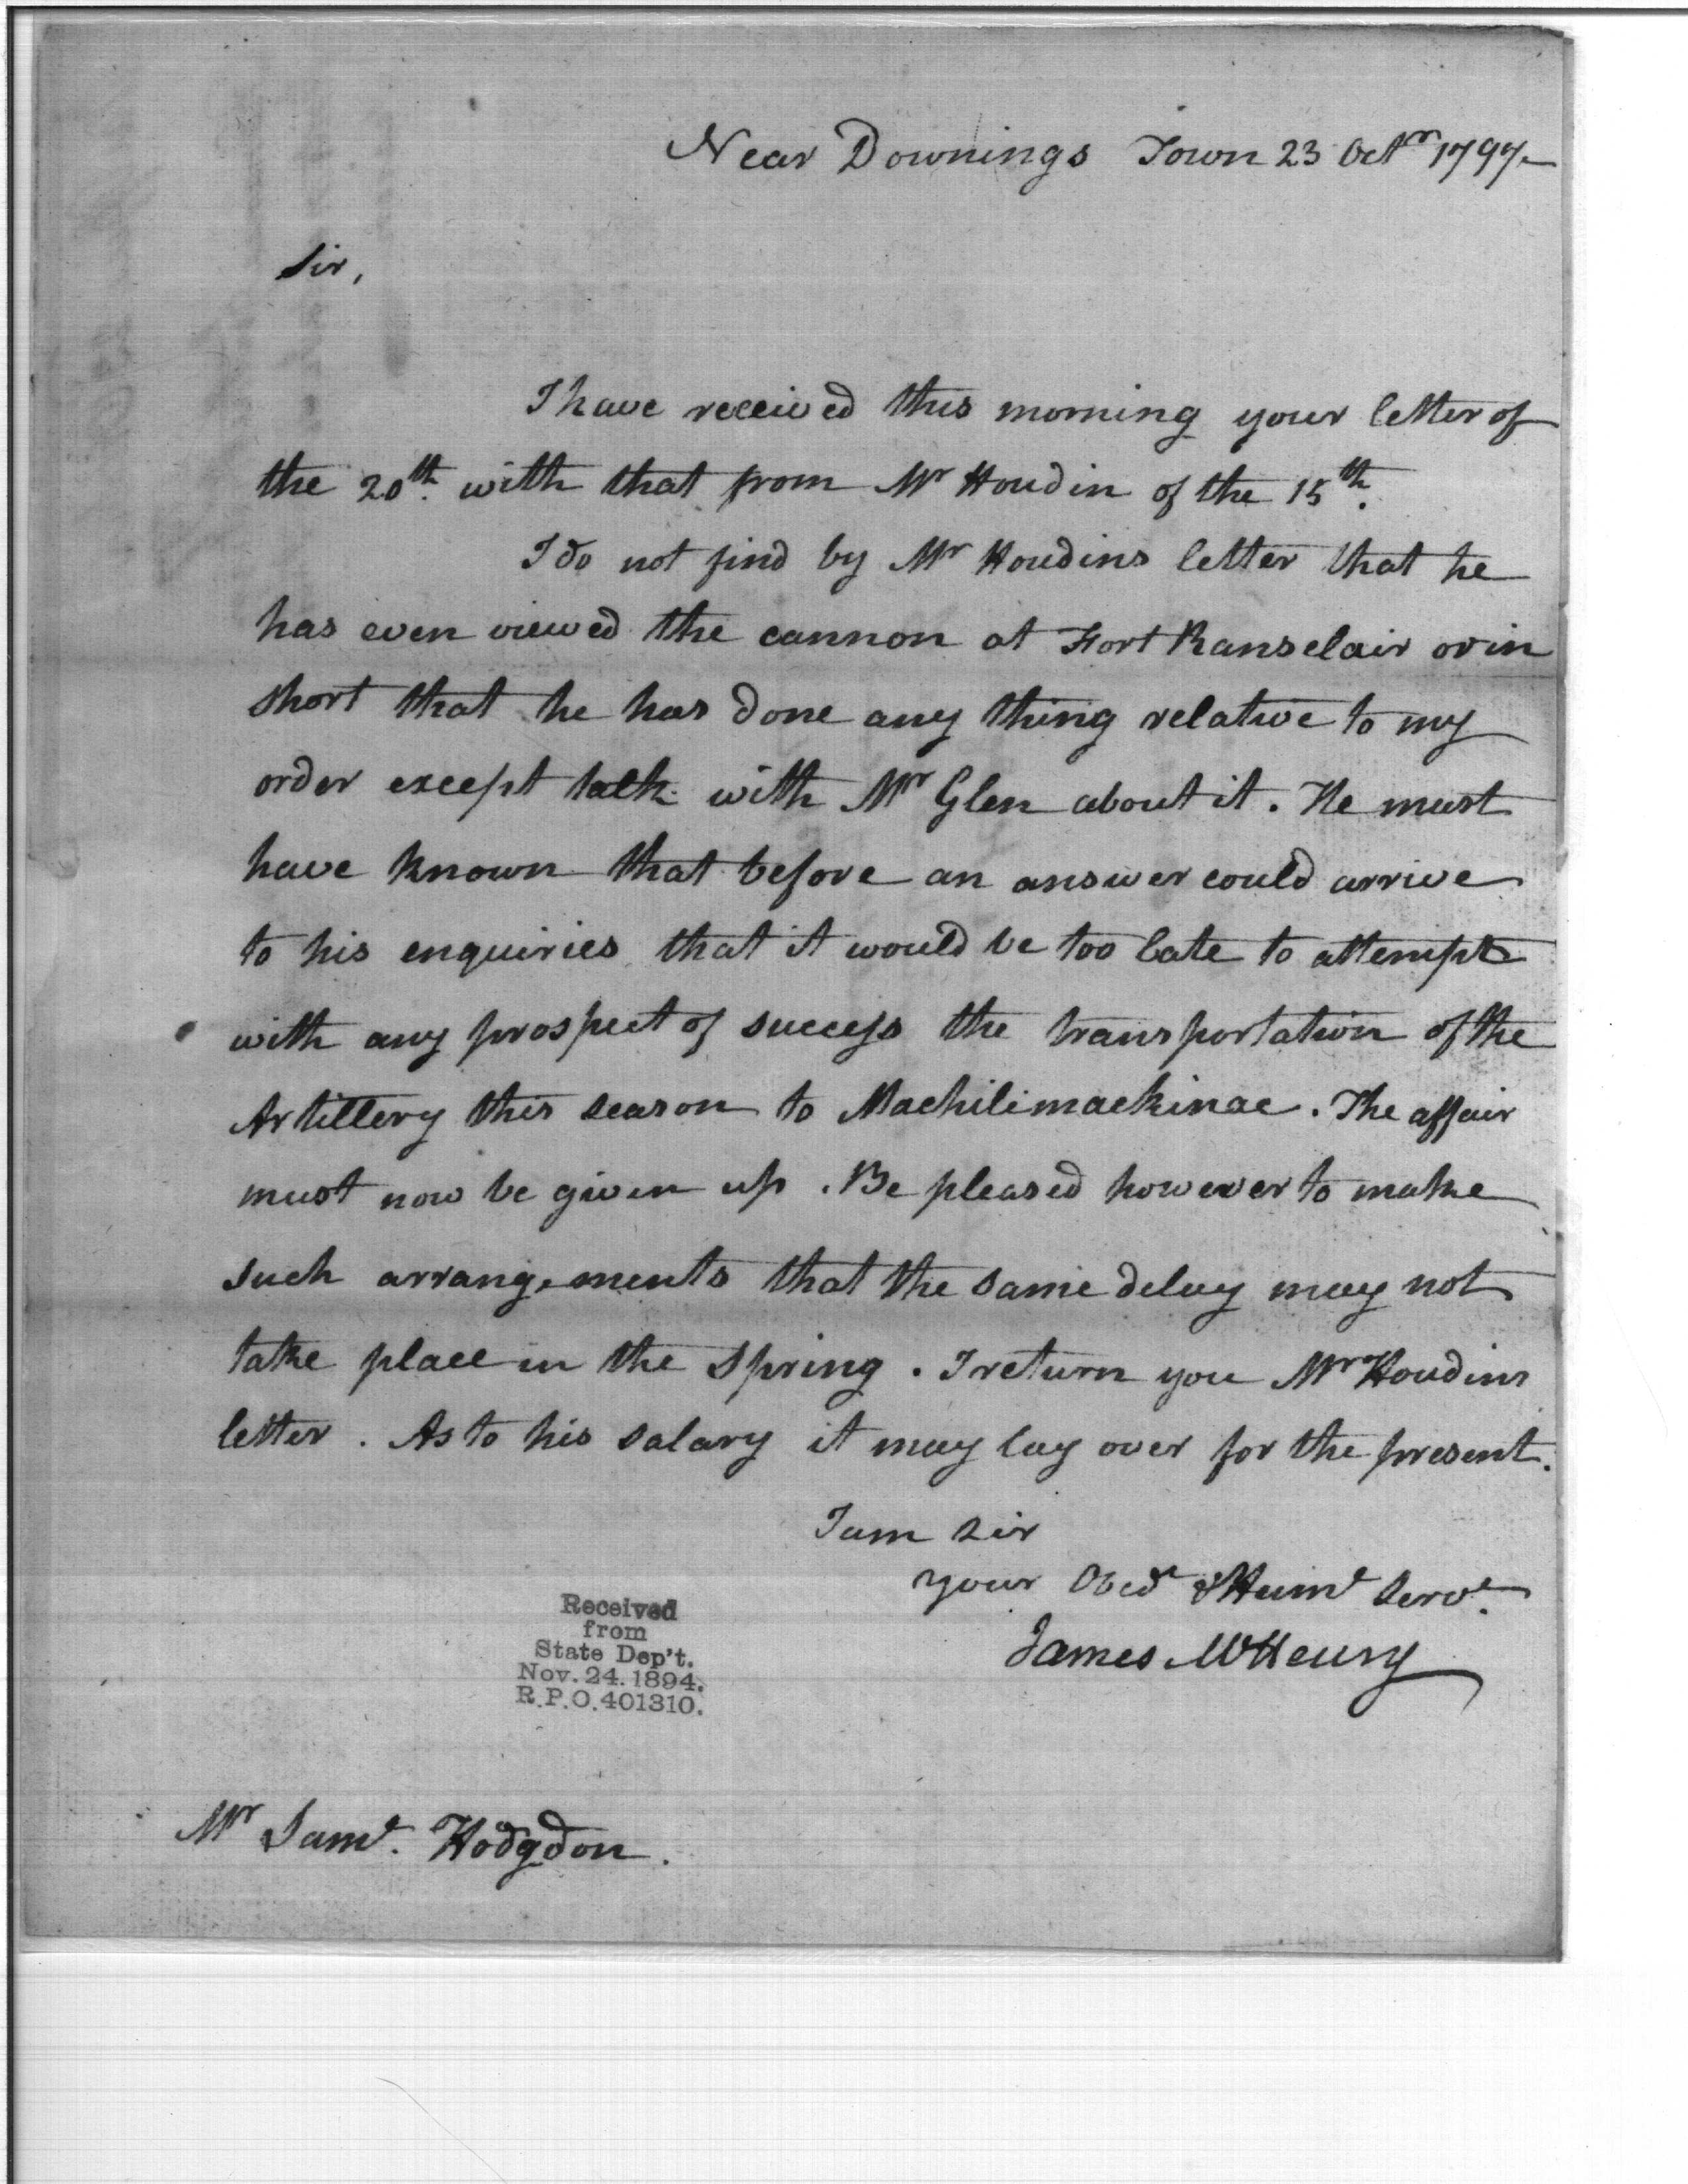 Near Downings Town 23 Octr 1797
Sir,
I have received this morning your letter of
the 20th. with that from Mr Houdin of the 15th.
I do not find by Mr Houdins letter that he
has even viewed the cannon at Fort Ranselair or in
short that he has done any thing relative to my
order except talk with Mr Glen about it. He must
have known that before an answer could arrive
to his enquiries that it would be too late to attempt
with any prospect of success the transportation of the
Artillery this season to Machilimackinac. The affair
must now be given up. Be pleased however to make
such arrangements that the same delay may not
take place in the Spring. I return you Mr Houdins
letter. As to his salary it may lay over for the present.
I am Sir
your Obedt & Humt Servt.
James McHenry
Received
from
State Dep't.
Nov. 24. 1894.
R.P.O. 401310.
Mr Saml. Hodgdon.